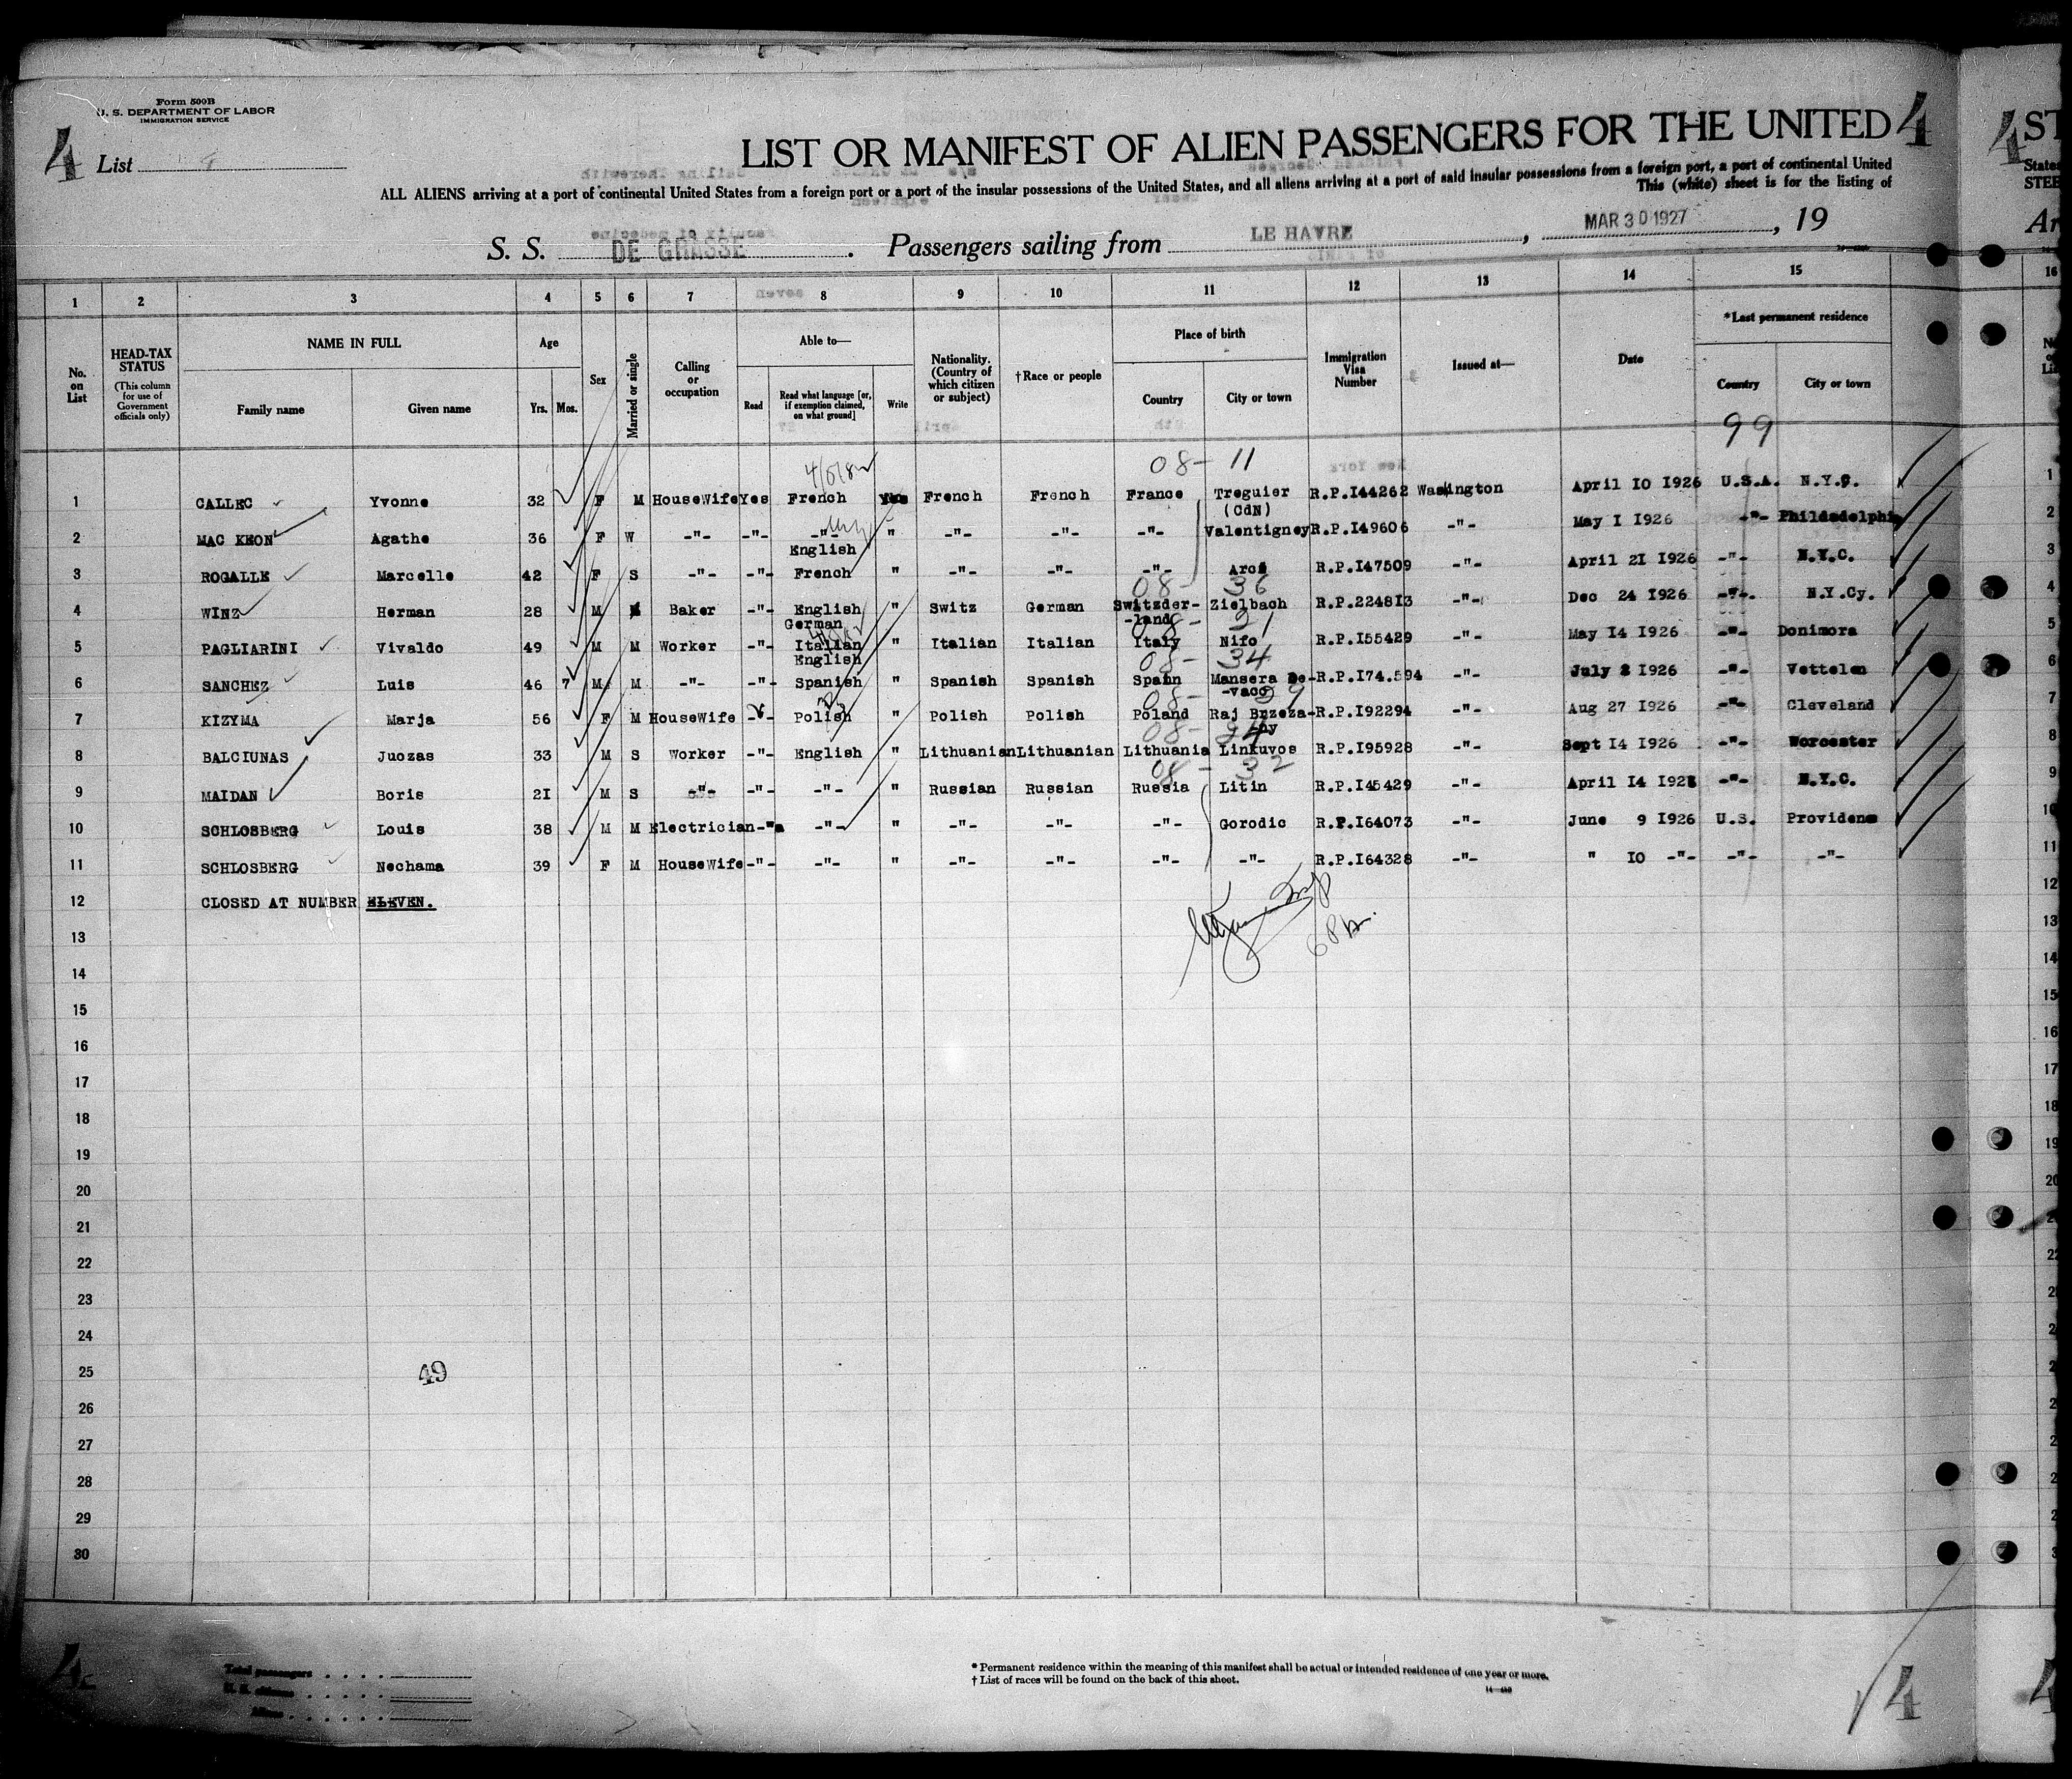 Form 500B
U. S. DEPARTMENT OF LABOR
IMMIGRATION SERVICE
4 List 4
LIST OR MANIFEST OF ALIEN PASSENGERS FOR THE UNITED 4
4 ST
ALL ALIENS arriving at a port of continental United States from a foreign port or a port of the insular possessions of the United States, and all aliens arriving at a port of said insular possessions from a foreign port, a port of continental United
States
This (white) sheet is for the listing of
STEE
S. S. DE GRASSE . Passengers sailing from LE HAVRE , MAR 30 1927 , 19
Ar
1 2 3 4 5 6 7 8 9 10 11 12 13 14 15 16
No. on List
HEAD-TAX STATUS (This column for use of Government officials only)
NAME IN FULL
Family name Given name
Age
Yrs. Mos.
Sex
Married or single
Calling or occupation
Able to—
Read Read what language [or, if exemption claimed, on what ground] Write
Nationality. (Country of which citizen or subject)
†Race or people
Place of birth
Country City or town
Immigration Visa Number
Issued at—
Date
*Last permanent residence
Country City or town
99
08- 11
1 CALLEC Yvonne 32 F M HouseWife Yes French Yes French French France Treguier (CdN) R.P.I44262 Washington April IO I926 U.S.A. N.Y.C. 1
2 MAC KEON Agathe 36 F W -"- -"- -"- English " -"- -"- -"- Valentigney R.P.I49606 -"- May I I926 -"- Phildadelphia 2
3 ROGALLE Marcelle 42 F S -"- -"- French " -"- -"- -"- R.P.I47509 -"- April 2I I926 -"- N.Y.C. 3
08- 36
4 WINZ Herman 28 M Baker -"- English German " Switz German Switzder-land Zielbach R.P.2248I3 -"- Dec 24 I926 -"- N.Y.Cy. 4
08- 21
5 PAGLIARINI Vivaldo 49 M M Worker -"- Italian English " Italian Italian Italy Nifo R.P.I55429 -"- May I4 I926 -"- Donimora 5
08- 34
6 SANCHEZ Luis 46 7 M M -"- -"- Spanish " Spanish Spanish Spain Mansera De-vaco R.P.I74.594 -"- July 2 I926 -"- Vettelen 6
08- 29
7 KIZYMA Marja 56 F M HouseWife -"- Polish " Polish Polish Poland Raj Brzeza-ny R.P.I92294 -"- Aug 27 I926 -"- Cleveland 7
08- 24
8 BALCIUNAS Juozas 33 M S Worker -"- English " Lithuanian Lithuanian Lithuania Linkuvos R.P.I95928 -"- Sept I4 I926 -"- Worcester 8
08- 32
9 MAIDAN Boris 2I M S -"- -"- -"- " Russian Russian Russia Litin R.P.I45429 -"- April I4 -"- N.Y.C. 9
10 SCHLOSBERG Louis 38 M M Electrician -"- -"- " -"- -"- -"- Gorodic R.P.I64073 -"- June 9 I926 U.S. Providene 10
11 SCHLOSBERG Nechama 39 F M HouseWife -"- -"- " -"- -"- -"- -"- R.P.I64328 -"- " IO -"- -"- -"- 11
12 CLOSED AT NUMBER ELEVEN. 12
13 13
14 14
15 15
16 16
17 17
18 18
19 19
20 20
21
22 22
23
24
25 49
26
27
28
29
30
4
Total passengers
U. S. citizens
Aliens
* Permanent residence within the meaning of this manifest shall be actual or intended residence of one year or more.
† List of races will be found on the back of this sheet.
4
4